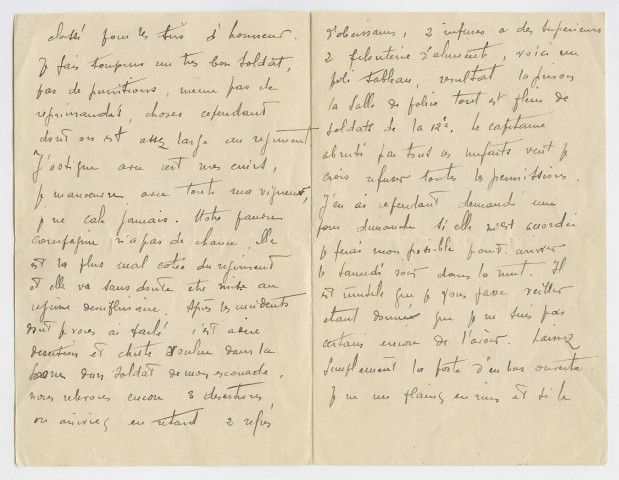 classé pour les tirs d'honneur.
Je fais toujours un très bon soldat,
pas de punitions, meme pas de
reprimandes, choses cependant
dont on est assez large au regiment
J'astique avec art mes cuirs,
je manoeuvre avec toute ma vigueur,
je ne cale jamais. Notre pauvre
compagnie n'a pas de chance, elle
est la plus mal cotée du regiment
et elle va sans doute etre mise au
regime disciplinaire. Après les incidents
dont je vous ai parlé c'est à dire
desertion et chute voulue dans la
Saone d'un soldat de mon escouade,
nous relevons encore 3 desertions,
ou arrivées en retard 2 refus
d'obeissance, 2 injures a des superieurs
2 filouterie d'aliments, voici un
joli tableau, resultat la prison
la salle de police tout est plein de
soldats de la 12e. Le capitaine
abruti par tous ces mefaits veut je
crois refuser toutes les permissions.
J'en ai cependant demandé une
pour dimanche si elle m'est accordée
je ferai mon possible pour arriver
le samedi soir dans la nuit. Il
est inutile que je vous fasse veiller
etant donné que je ne suis pas
certain encore de l'avoir. Laissez
simplement la porte d'en bas ouverte.
Je ne me plains en rien et si le